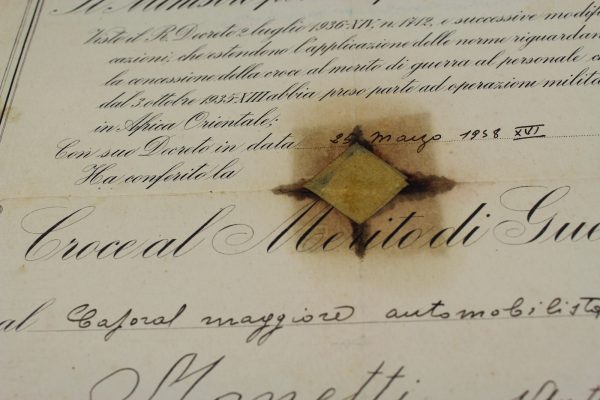 Il Ministro
Visto il R. Decreto 2 luglio 1936-XIV, n. 1712, e successive modifi
cazioni, che estendono l'applicazione delle norme riguardan
la concessione della croce al merito di guerra al personale c
dal 3 ottobre 1935-XIII abbia preso parte ad operazioni milita
in Africa Orientale;
Con suo Decreto in data 25 Marzo 1938 XVI
Ha conferito la
Croce al Merito di Gue
al Caporal maggiore automobilista